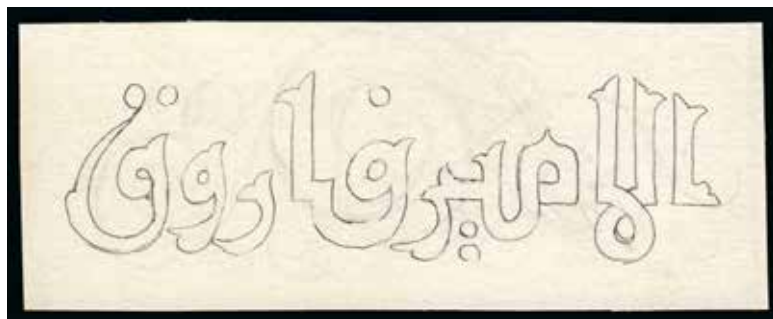 الامير فاروق